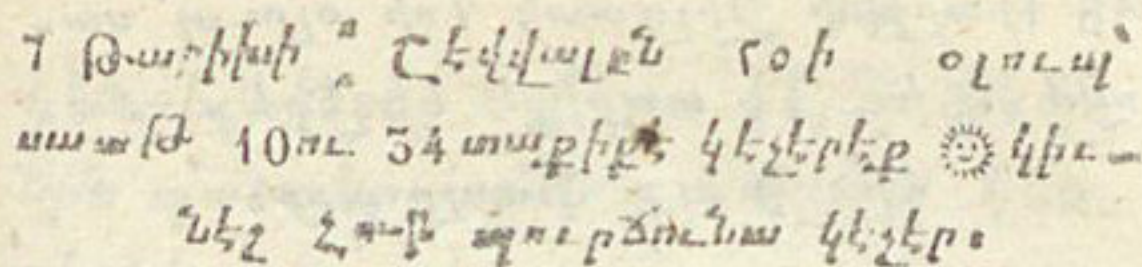 Թարիխի Շէվվալըն ٢٥ ի օլուպ՝
սաաթ 10ու 34 տաքիքէ կէչէրէք ☼ կիւ-
նէշ Հութ պուրճունա կէչէր։